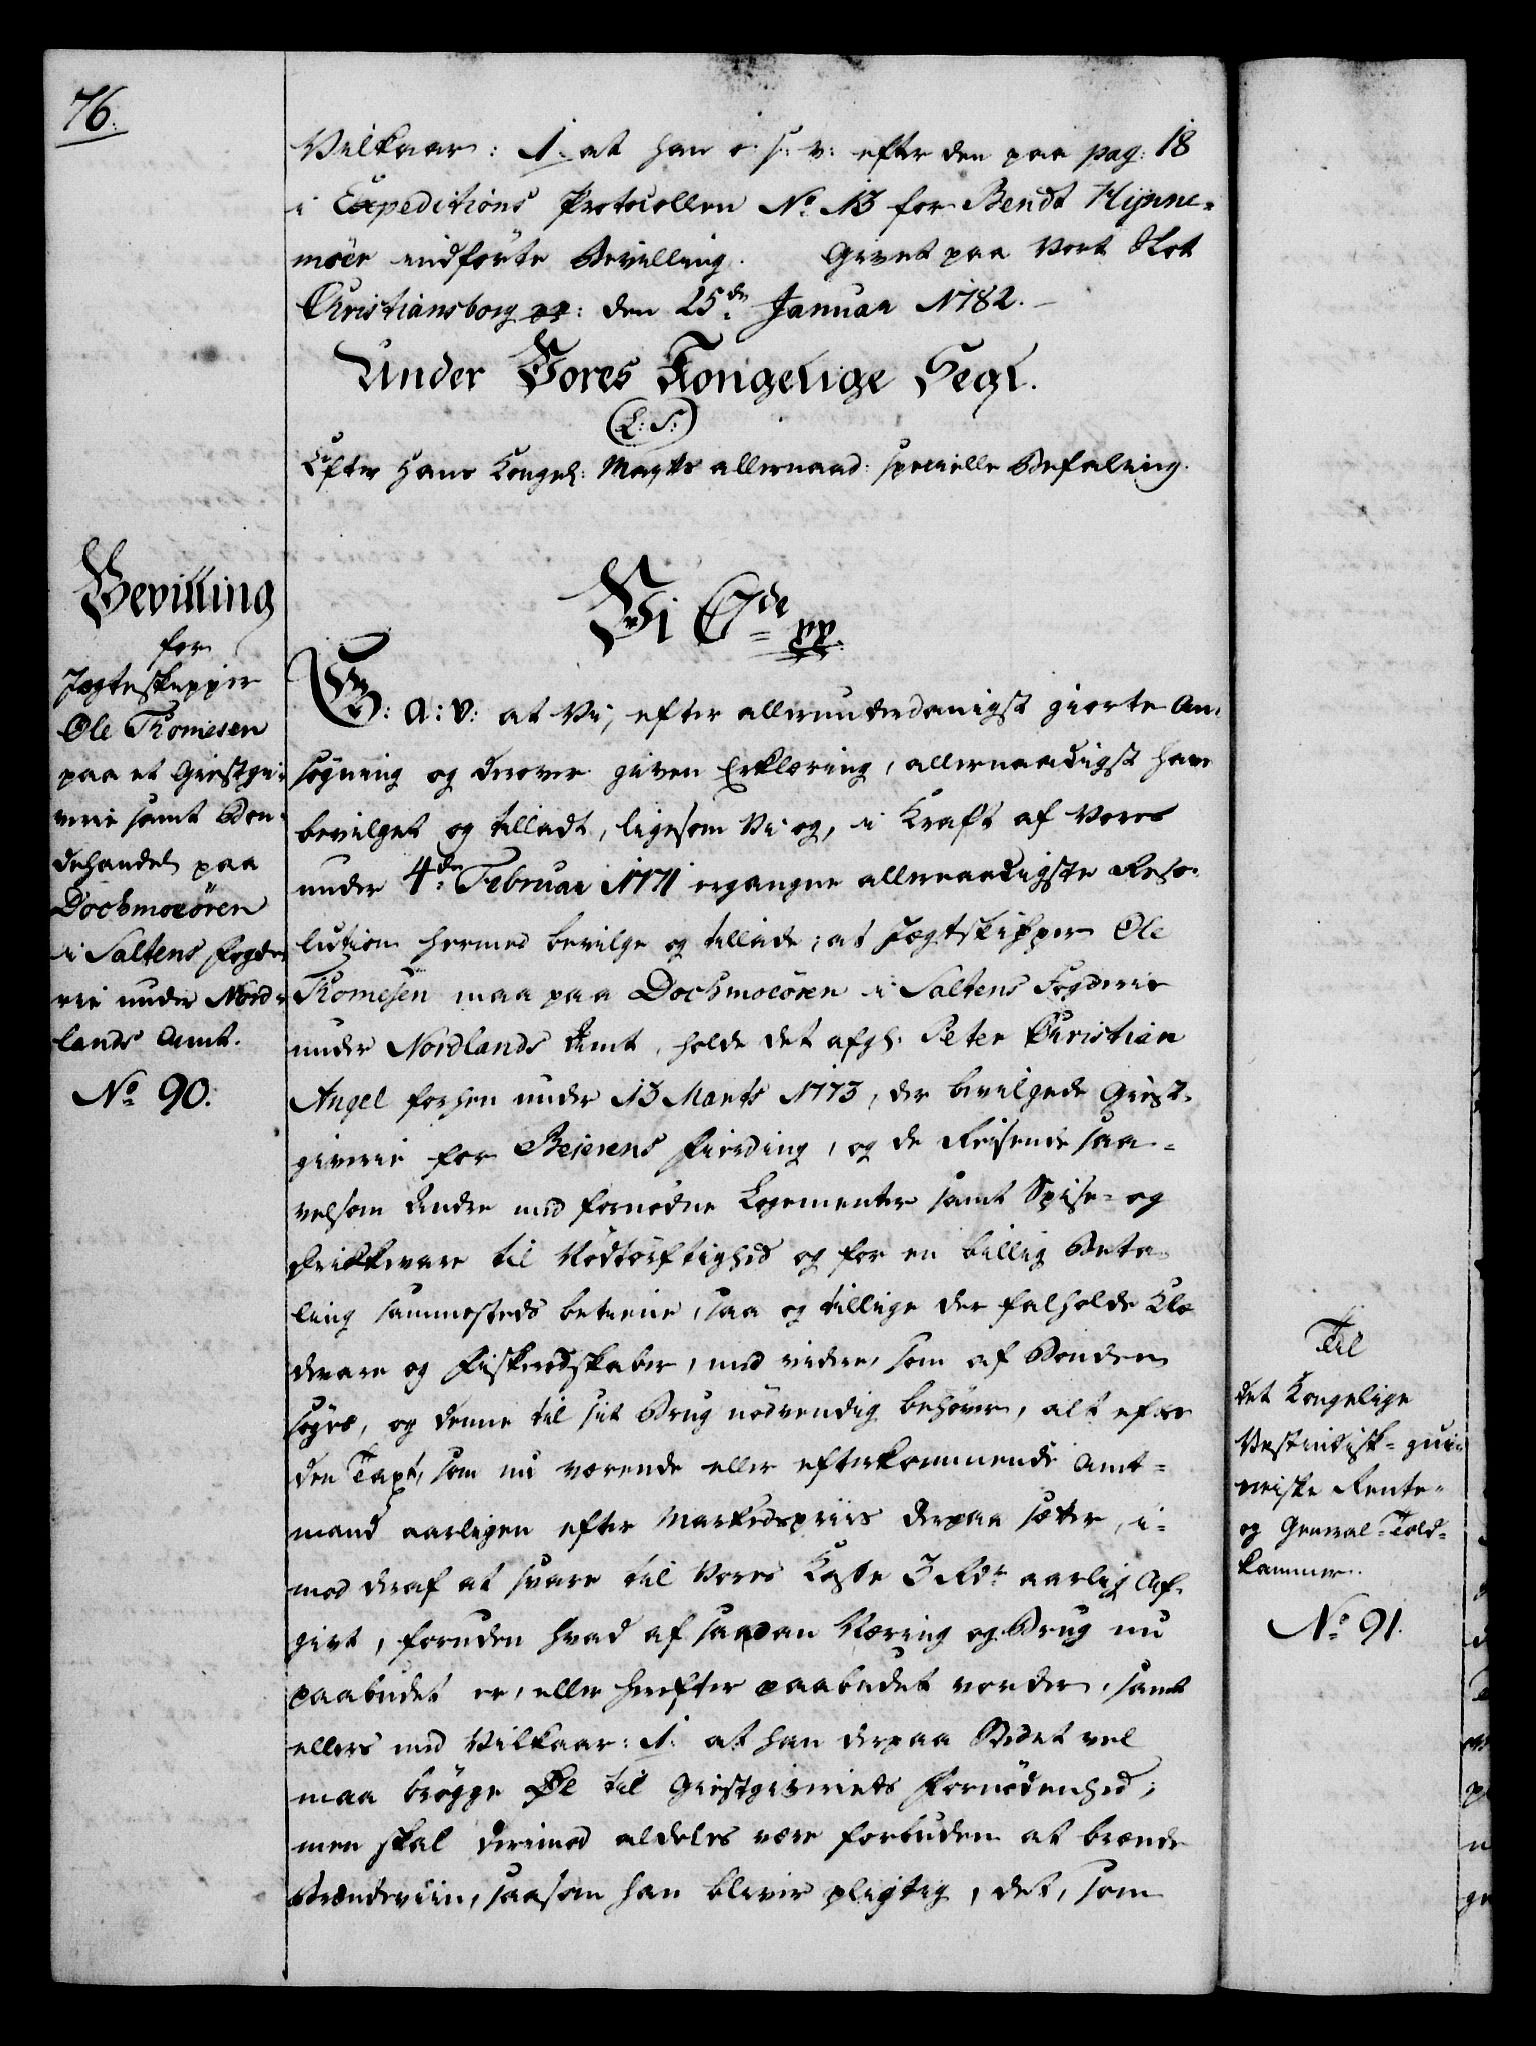 76.
Vilkaar: 1. at han o: s: v: efter den paa pag: 18
i Expeditions Protocollen No. 13 for Bendt Hynne-
möer indførte Bevilling. Givet paa Vort Slot
Christiansborg pp: den 25de Januar 1782.
Under Vores Kongelige Segl.
(L: S:)
Efter Hans Kongel: Mayts allernaad: specielle Befaling.
Bevilling
for
Jægteskipper
Ole Thomesen
paa et Giestgi-
verie samt Bon-
dehandel paa
Dochmoeören
i Saltens Fogde-
rie under Nord-
lands Amt.
No. 90.
Vi C 7de pp.
G: A: V: at Vi, efter allerunderdanigst giorte An-
søgning og derover given Erklæring, allernaadigst have
bevilget og tilladt, ligesom Vi og, i Kraft af Vores
under 4de Februar 1771 ergangne allernaadigste Reso-
lution hermed bevilge og tillade; at Jægtskipper Ole
Thomesen maa paa Dochmoeören i Saltens Fogderie
under Nordlands Amt, holde det afg: Peter Christian
Angel forhen under 13 Marts 1773, der bevilgede Giest-
giverie for Beierens Fierding, og de Reisende saa-
velsom Andre med fornødne Logementer samt Spise- og
Drikkevare til Nødtørftighed og for en billig Beta-
ling sammesteds betiene, saa og tillige der falholde Klæ-
devare og Fiskeredskaber, med videre, som af Bonden
søges, og denne til sit Brug nödvendig behöver, alt efter
den Taxt, som nu værende eller efterkommende Amt-
mand aarligen efter Markedspriis derpaa sætter, i-
mod deraf at svare til Vores Kasse 3 Rdr aarlig Af-
givt, foruden hvad af saadan Næring og Brug nu
paabudet er, eller herefter paabudet vorder, samt
ellers med Vilkaar: 1. at han derpaa Stedet vel
maa brøgge Øl til Giestgiveriets Fornödenhed;
men skal derimod aldeles være forbuden at brænde
Brændeviin, saasom han bliver pligtig, det, som
Til
det Kongelige
Vestindisk- gui-
neiske Rente-
og General-Told-
kammer.
No. 91.